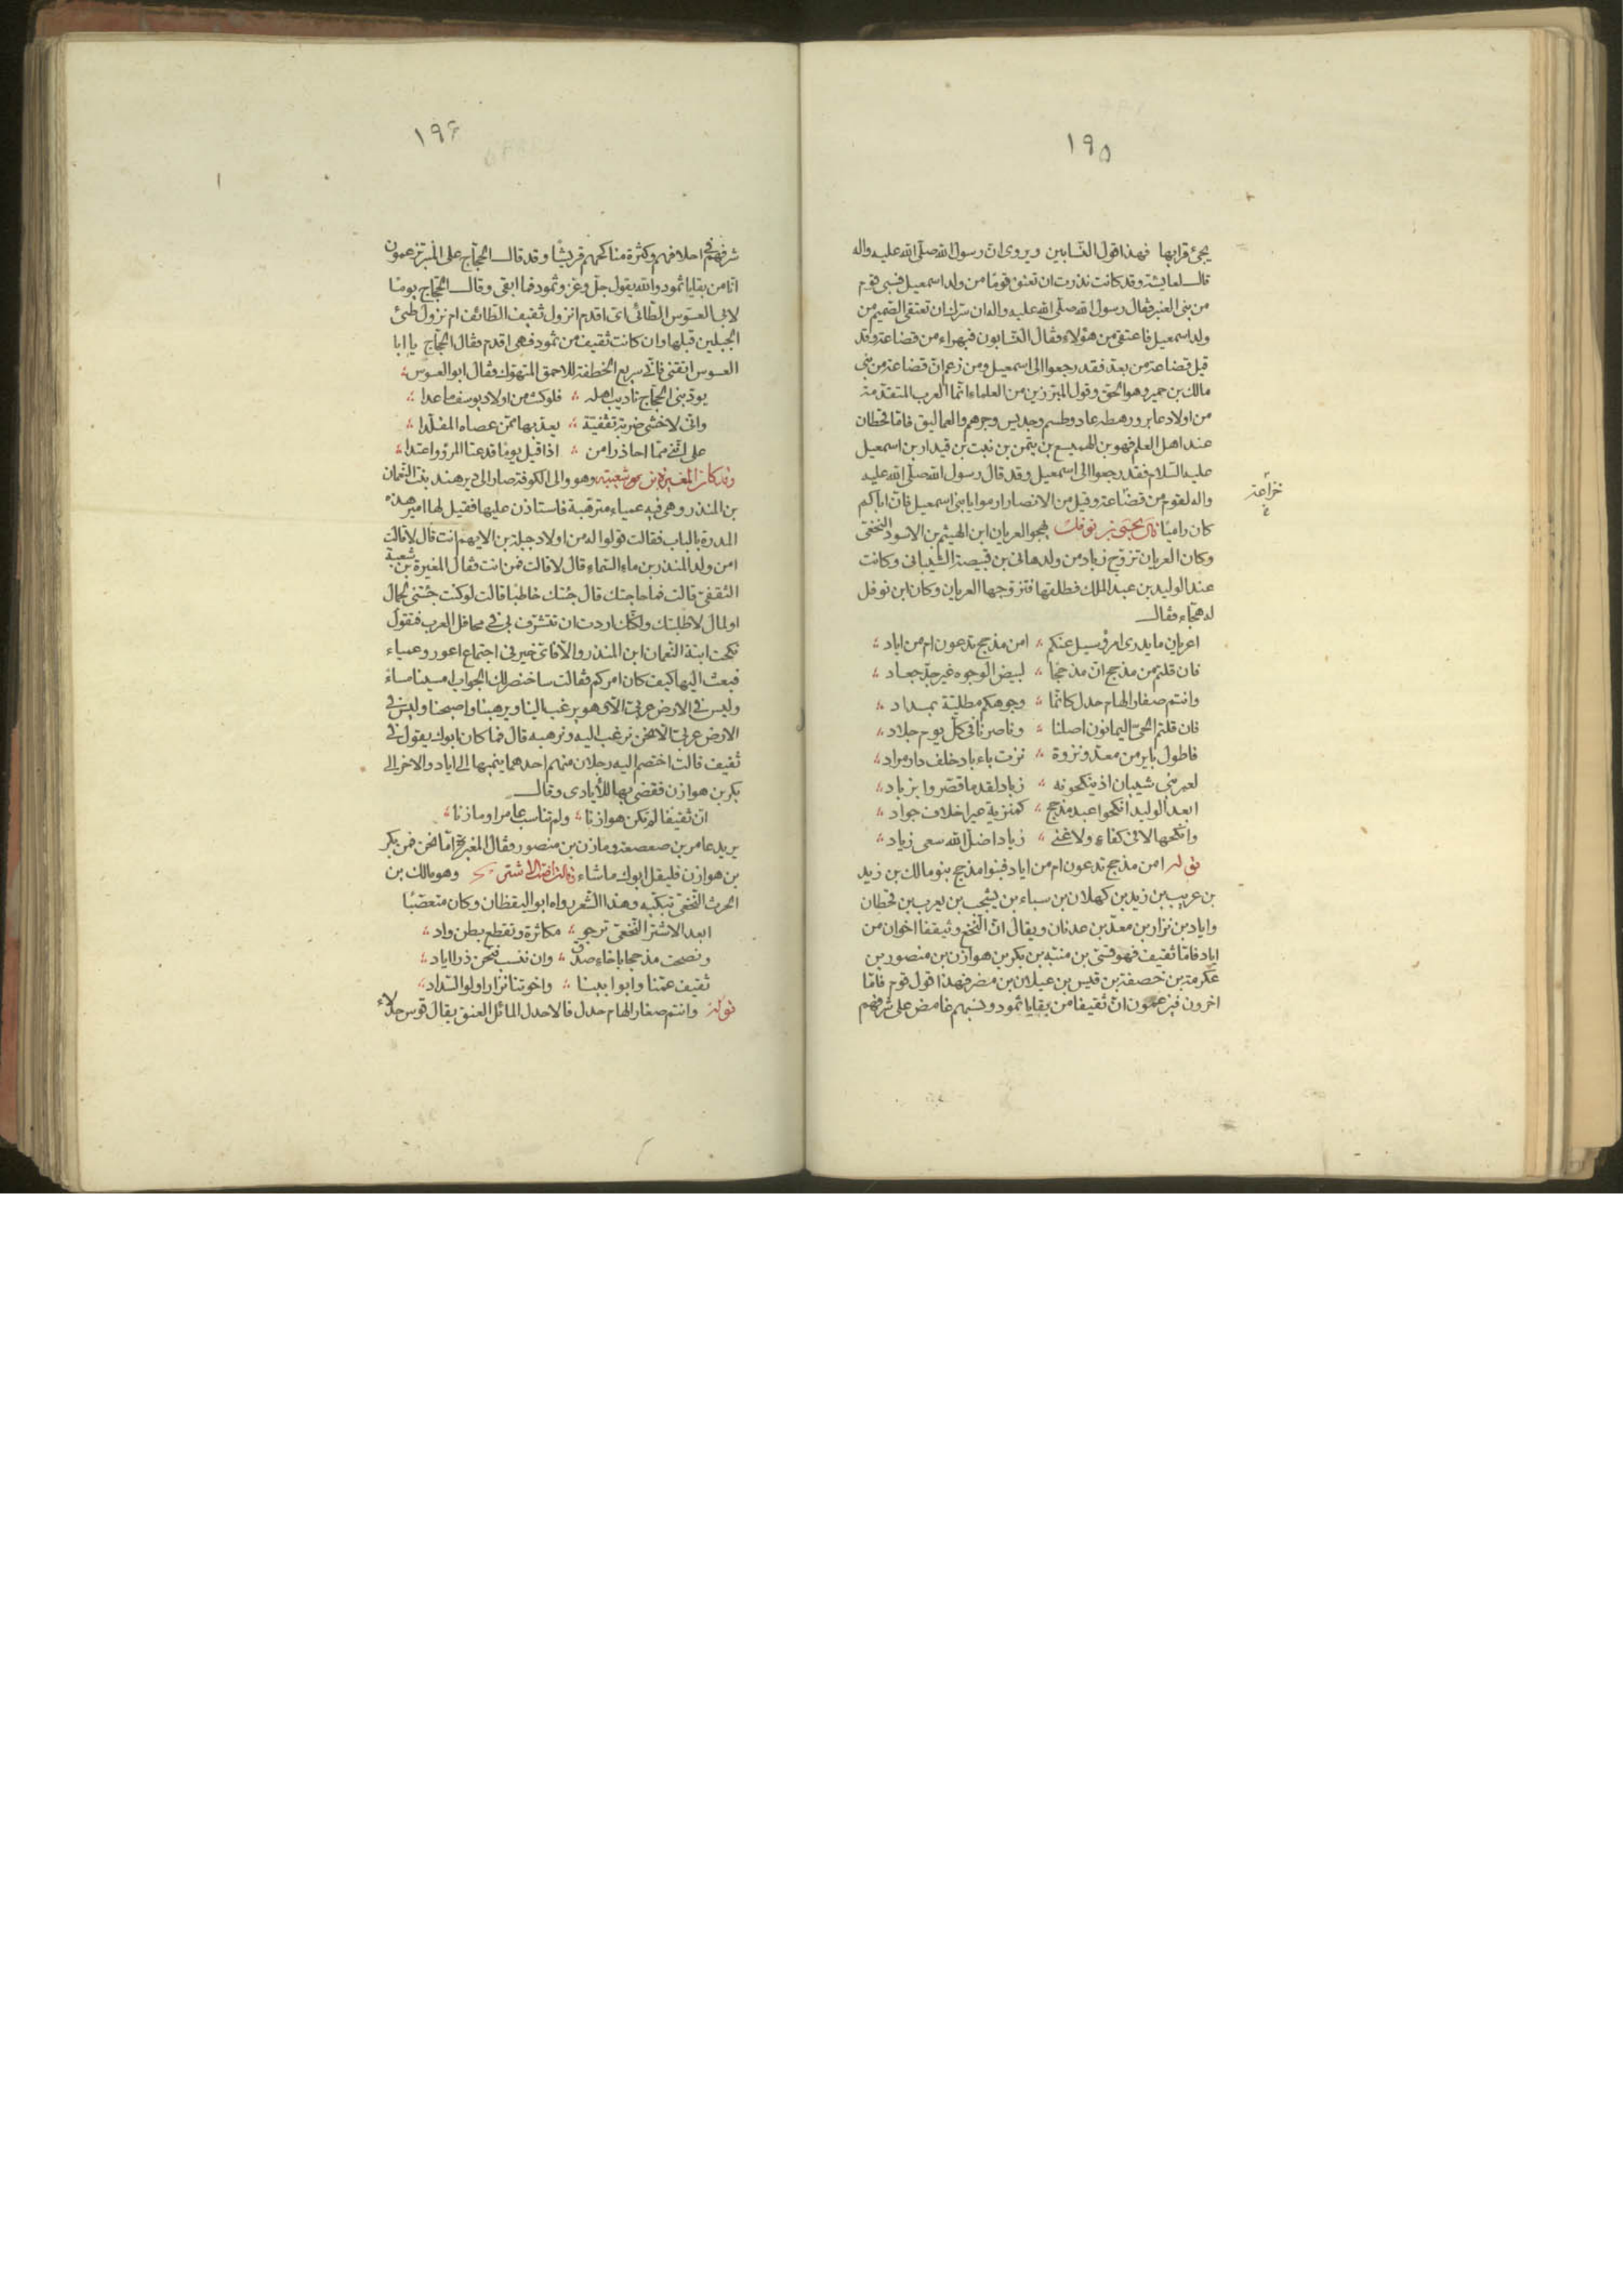 ١٩٥
يجئ قرابها فهذا قول النسابين ويروى ان رسول الله صلى الله عليه واله
قال لعايشة وقد كانت نذرت ان تعتق قوما من ولد اسمعيل فسبى قوم
من بنى العنبر فقال رسول الله صلى الله عليه واله ان سرك ان تعتقى الصميم من
ولد اسمعيل فاعتقى من هؤلاء فقال النسابون فبهراء من قضاعة وقد
قيل قضاعة من بعد فقد رجعوا الى اسمعيل ومن زعم ان قضاعة من بنى
مالك بن حمير وهو الحق وقول المبرزين من العلماء انما العرب المتقدمة
من اولاد عابر ورهطه عاد وطسم وجديس وجرهم والعماليق فاما قحطان
عند اهل العلم فهو بن الهميسع بن يتمن بن نبت بن قيدار بن اسمعيل
عليه السلام فقد رجعوا الى اسمعيل وقد قال رسول الله صلى الله عليه
واله لقوم من قضاعة وقيل من الانصار ارموا يا بنى اسمعيل فان اباكم
خزاعة
كان راميا قال يحيى بن نوفل يهجو العريان ابن الهيثم بن الاسود النخعى
وكان العريان تزوج زياد من ولد هانى بن قبيصة الشيبانى وكانت
عند الوليد بن عبد الملك فطلقها فتزوجها العريان وكان ابن نوفل
له هجاء فقال
اعريان ما يدرى امرؤ سيل عنكم ؞ امن مذحج تدعون ام من اياد ؞
فان قلتم من مذحج ان مذحجا ؞ لبيض الوجوه غير جد جعاد ؞
وانتم صغار الهام حدل كانما ؞ وجوهكم مطلية بمداد ؞
فان قلتم الحى اليمانون اصلنا ؞ وناصرنا فى كل يوم جلاد ؞
فاطول باير من معد ونزوة ؞ نزت باياد خلف دار مراد ؞
لعمر بنى شيبان اذ ينكحونه ؞ زياد لقد ما قصروا بزياد ؞
ابعد الوليد انكحوا عبد مذحج ؞ كمنزية عيرا خلاف جواد ؞
وانكحها لا فى كفاء ولا غنى ؞ زياد اضل الله سعى زياد ؞
قوله امن مذحج تدعون ام من اياد فبنوا مذحج بنو مالك بن زيد
بن عريب بن زيد بن كهلان بن سباء بن يشجب بن يعرب بن قحطان
واياد بن نزار بن معد بن عدنان ويقال ان النخع وثقيفا اخوان من
اياد فاما ثقيف فهو قسى بن منبه بن بكر بن هوازن بن منصور بن
عكرمة بن خصفة بن قيس بن عيلان بن مضر فهذا قول قوم فاما
اخرون فيزعمون ان ثقيفا من بقايا ثمود ونسبهم غامض على شرفهم
١٩٦
شرفهم فى اخلاقهم وكثرة مناكحهم قريشا وقد قال الحجاج على المنبر تزعمون
انا من بقايا ثمود والله يقول جل وعز وثمود فما ابقى وقال الحجاج يوما
لابى العسوس الطائى اى اقدم انزول ثقيف الطائف ام نزول طيئ
الجبلين قبلها وان كانت ثقيف من ثمود فهى اقدم فقال الحجاج يا ابا
العسوس اتقنى فانى سريع الخطفة للاحمق المتهوك فقال ابو العسوس ؞
يودبنى الحجاج تاديب اهله ؞ فلو كنت من اولاد يوسف ما عدا ؞
وانى لاخشى ضربة ثقفية ؞ يعد بها ممن عصاه المقلدا ؞
على اننى مما احاذر امن ؞ اذا قيل يوما قد عتا المرؤ واعتدا ؞
وقد كان المغيرة بن شعبة وهو والى الكوفة صار الى دير هند بنت النعمان
بن المنذر وهى فيه عمياء مترهبة فاستاذن عليها فقيل لها امير هذه
المدرة بالباب فقالت قولوا له من اولاد جبلة بن الايهم انت قال لا قالت
امن ولد المنذر بن ماء السماء قال لا قالت فمن انت فقال المغيرة بن شعبة
الثقفى قالت فما حاجتك قال جئتك خاطبا قالت لو كنت جئتنى لجمال
او لمال لاطلبتك ولكنك اردت ان تتشرف بى فى محافل العرب فتقول
نكحت ابنة النعمان ابن المنذر والا فاى خير فى اجتماع اعور وعمياء
فبعث اليها كيف كان امركم فقالت ساختصر لك الجواب امسينا مساء
وليس فى الارض عربى الا وهو يرغب الينا ويرهبنا واصبحنا وليس فى
الارض عربى الا ونحن نرغب اليه ونرهبه قال فما كان ابوك يقول فى
ثقيف قالت اختصم اليه رجلان منهم احدهما ينميها الى اياد والاخر الى
بكر بن هوازن فقضى بها للايادى وقال
ان ثقيفا لم تكن هوازنا ؞ ولم تناسب عامرا ومازنا ؞
يريد عامر بن صعصعة ومازن بن منصور فقال المغيرة اما نحن فمن بكر
بن هوازن فليقل ابوك ما شاء قالت اخت الاشتر وهو مالك بن
الحرث النخعى تبكيه وهذا الشعر رواه ابو اليقظان وكان متعصبا
ابعد الاشتر النخعى نرجو ؞ مكاثرة ونقطع بطن واد ؞
ونصحب مذحجا باخاء صدق ؞ وان ننسب فنحن ذرا اياد ؞
ثقيف عمنا وابو ابينا ؞ واخوتنا نزار اولو السداد ؞
قوله وانتم صغار الهام حدل فالاحدل المائل العنق يقال قوس حدلاء